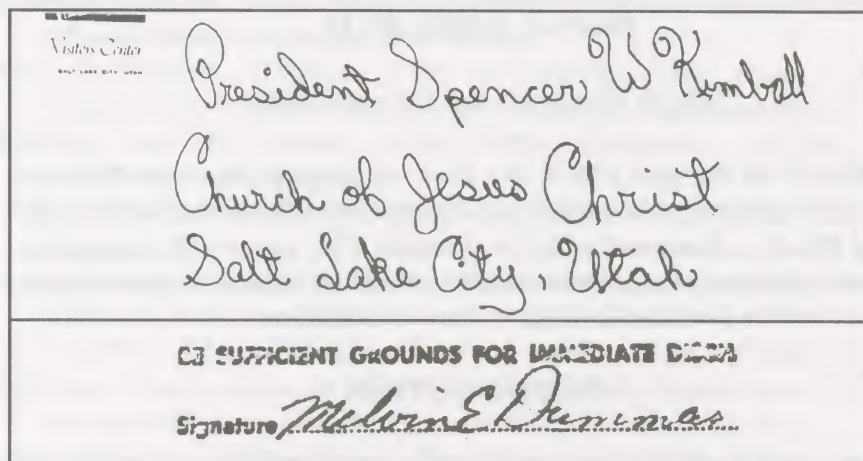 Visitors Center
SALT LAKE CITY, UTAH
President Spencer W Kimball
Church of Jesus Christ
Salt Lake City, Utah
BE SUFFICIENT GROUNDS FOR IMMEDIATE
Signature Melvin E Dummar